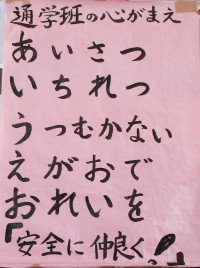 通学班の心がまえ
あいさつ
いちれつ
うつむかない
えがおで
おれいを
「安全に仲良く!」